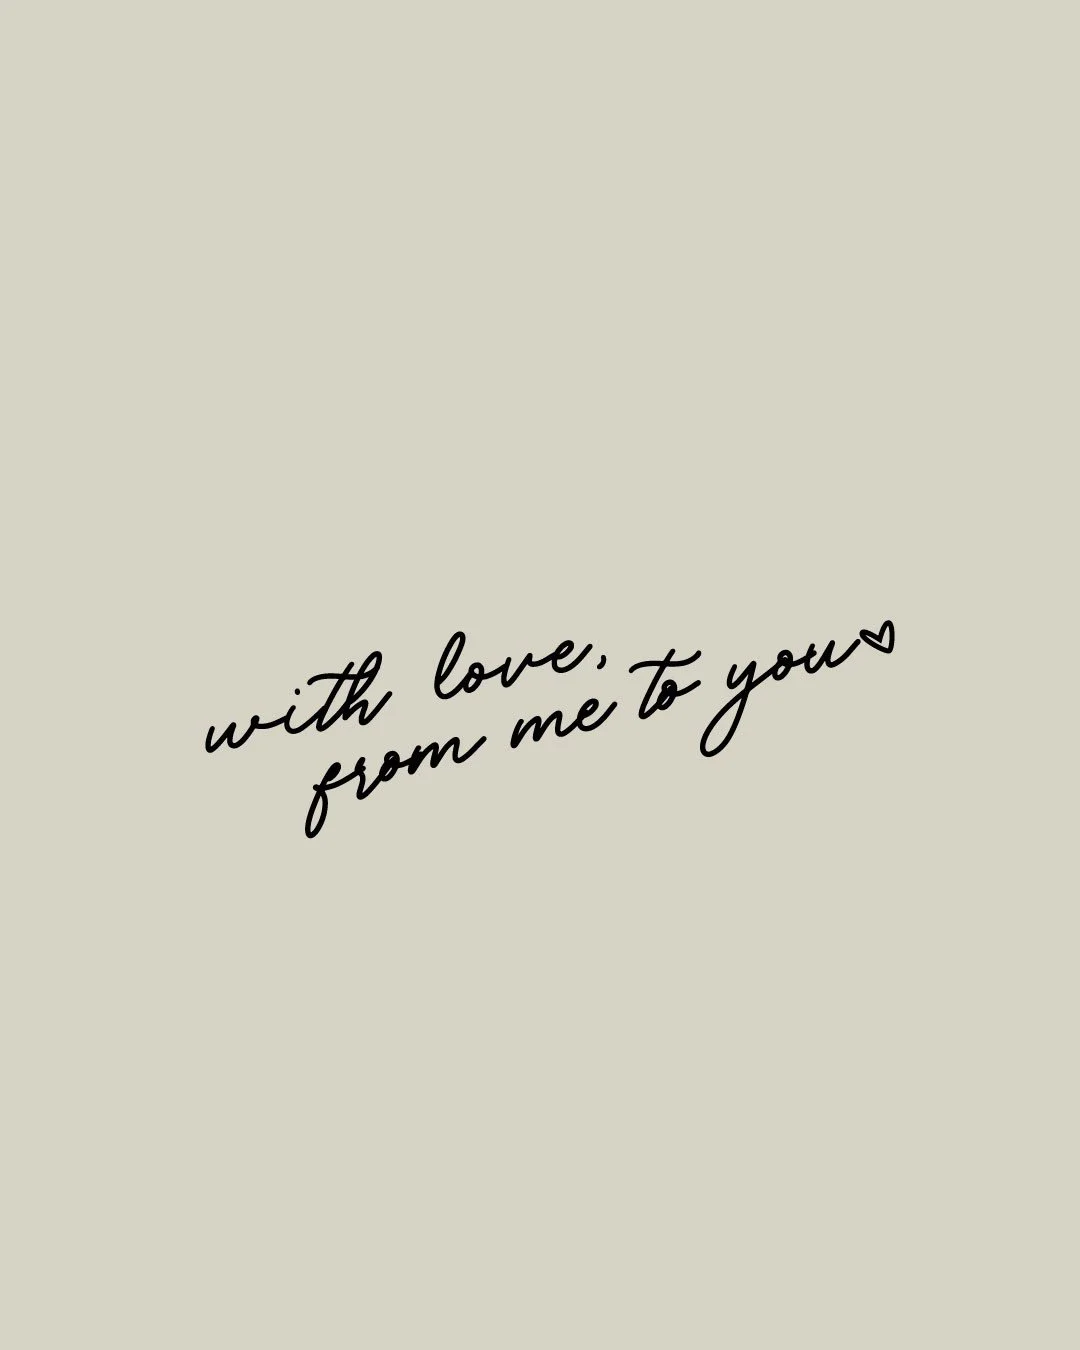 with love,
from me to you♡